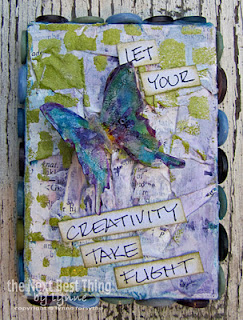 LET
YOUR
CREATIVITY
TAKE
FLIGHT
the Next Best Thing
by Lynne
copyright ©lynne forsythe